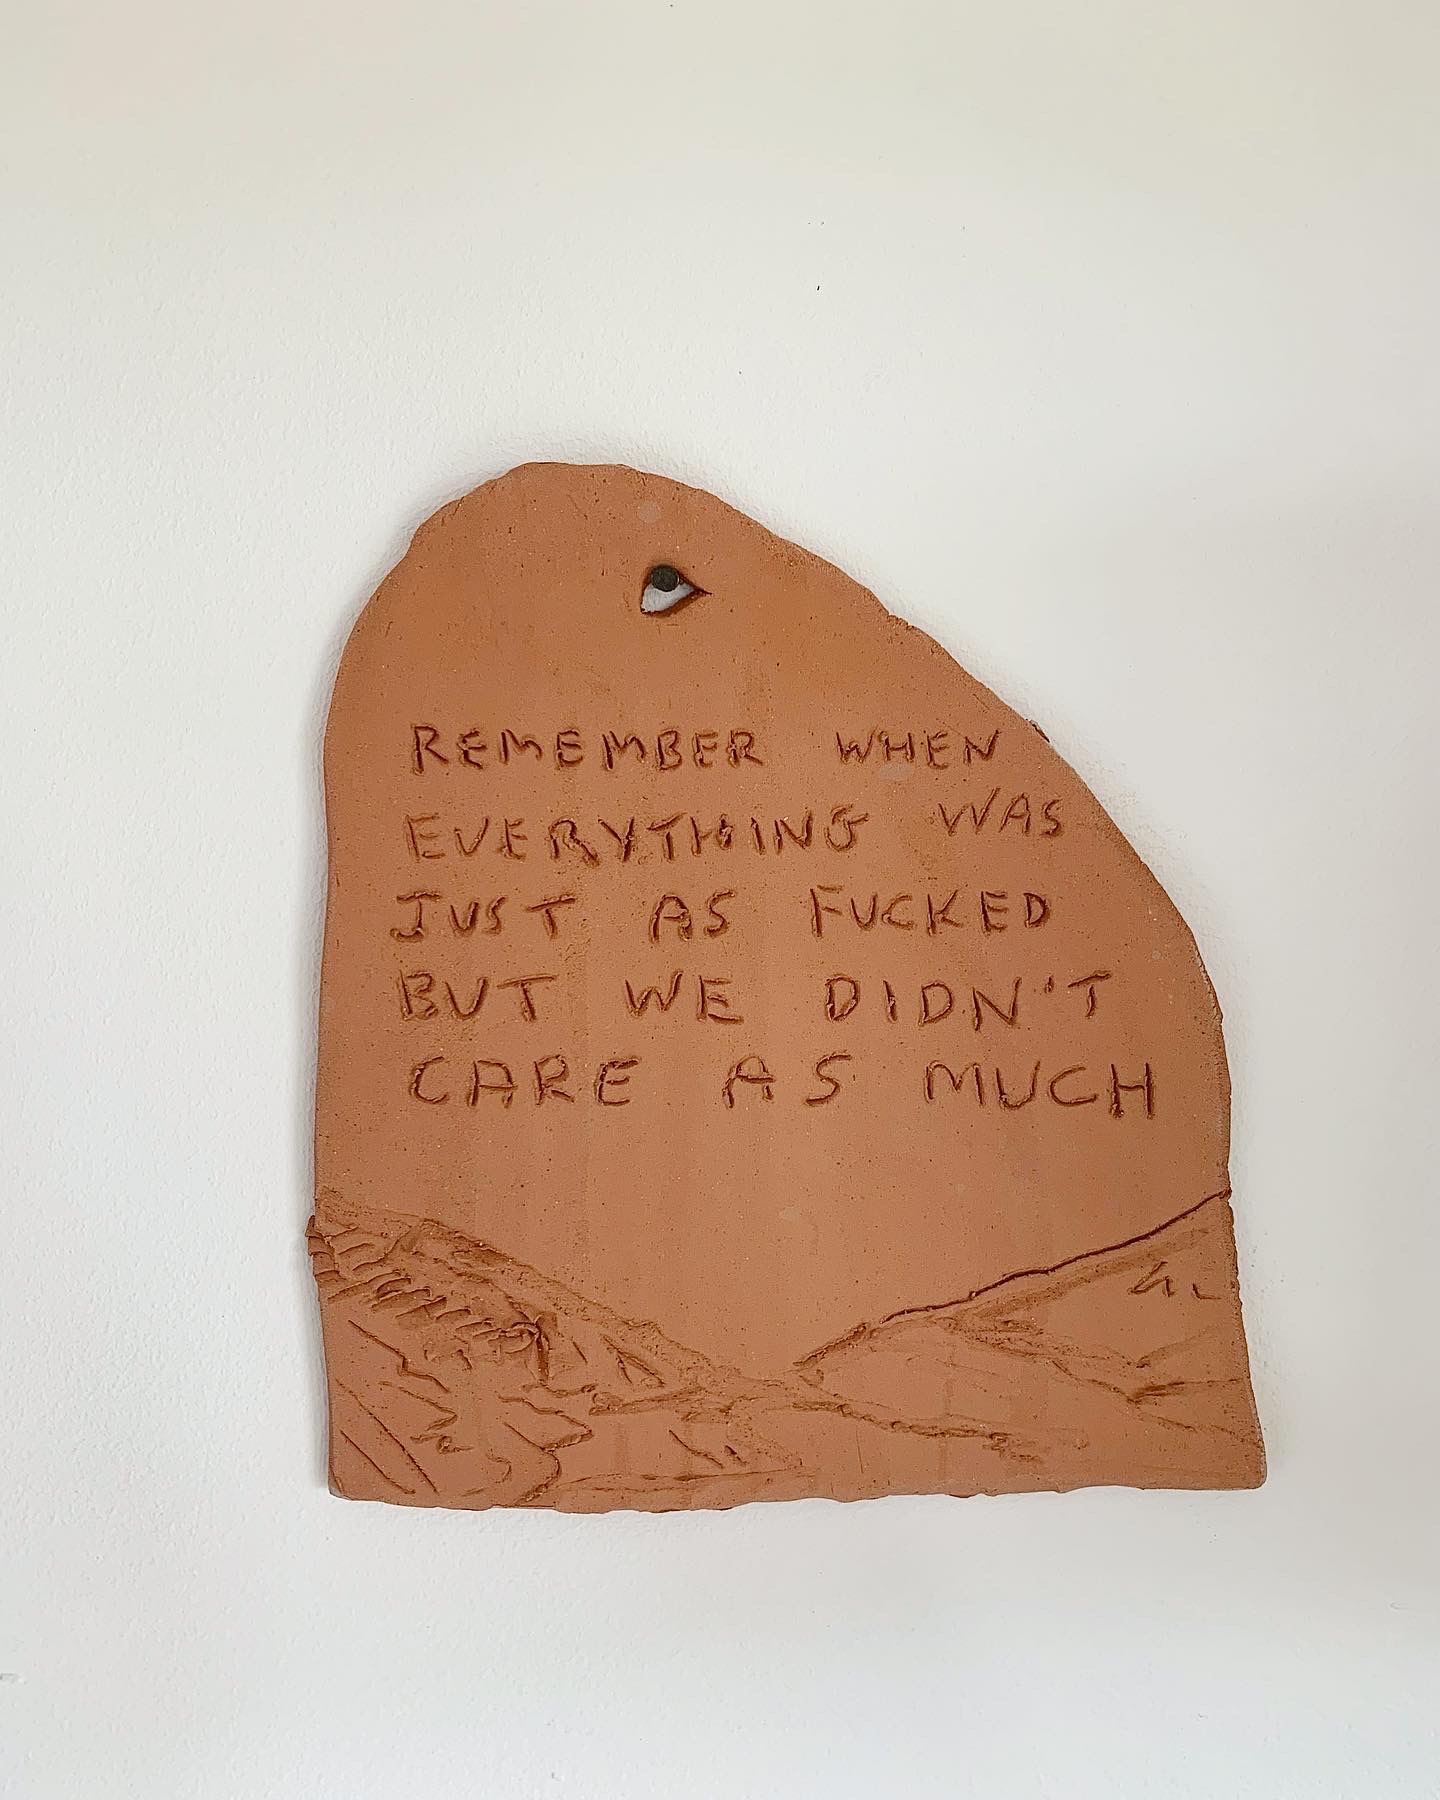 REMEMBER WHEN
EVERYTHING WAS
JUST AS FUCKED
BUT WE DIDN'T
CARE AS MUCH